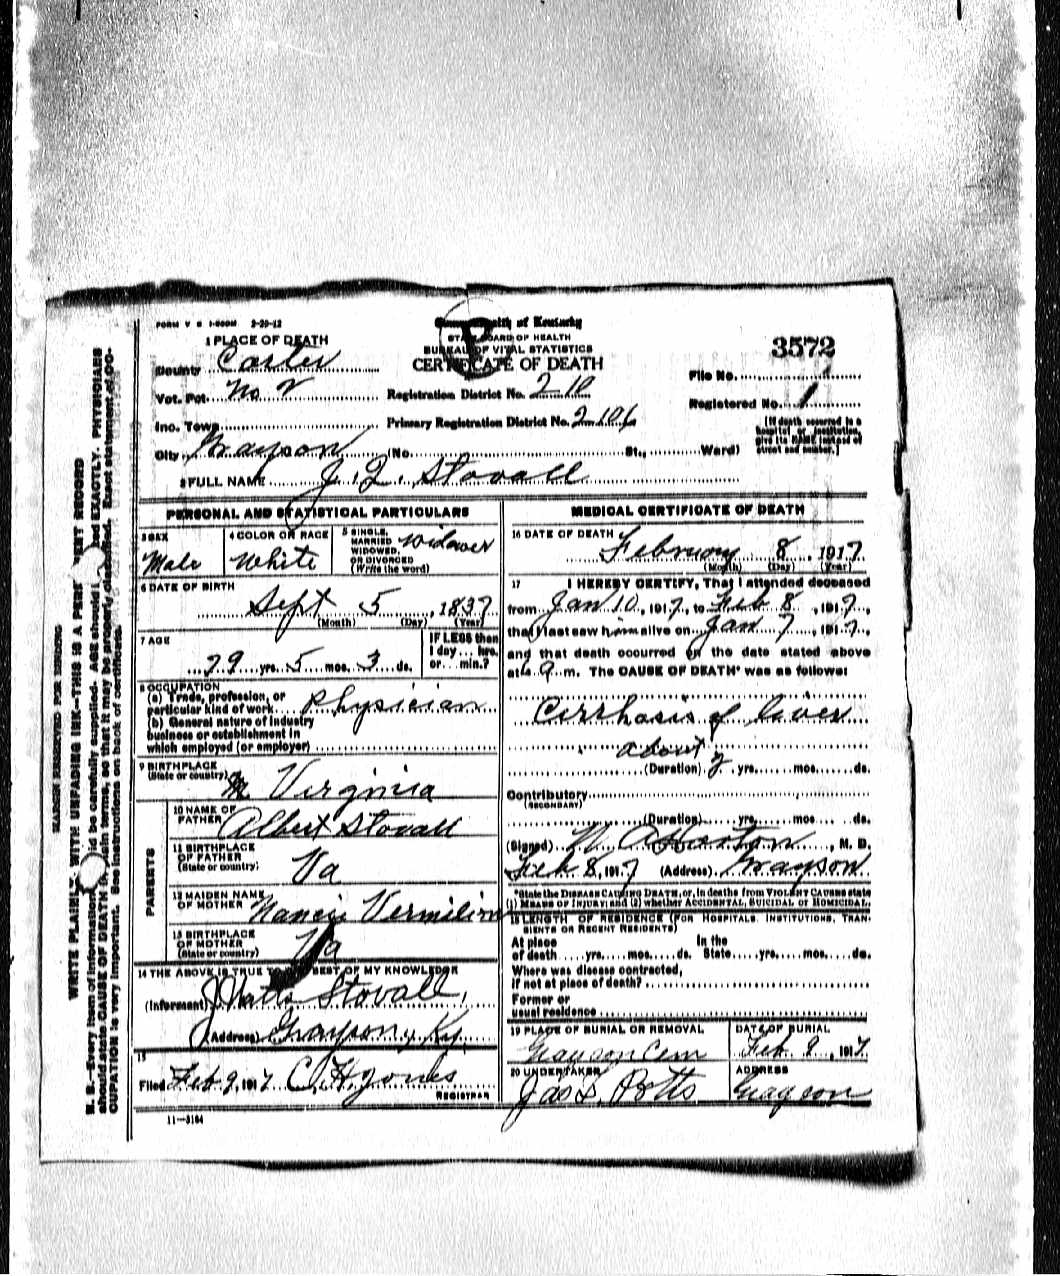 FORM V S 1-500M 2-20-12
Commonwealth of Kentucky
STATE BOARD OF HEALTH
BUREAU OF VITAL STATISTICS
CERTIFICATE OF DEATH
3572
1 PLACE OF DEATH
County Carter
Vot. Pct. No 2
Inc. Town
City Grayson (No. St., Ward)
Registration District No. 210
Primary Registration District No. 2106
File No.
Registered No. 1
[If death occurred in a hospital or institution, give its NAME instead of street and number.]
2 FULL NAME J. Q. Stovall
PERSONAL AND STATISTICAL PARTICULARS
3 SEX
Male
4 COLOR OR RACE
White
5 SINGLE, MARRIED WIDOWED, OR DIVORCED (Write the word)
Widower
6 DATE OF BIRTH
Sept 5, 1837
(Month) (Day) (Year)
7 AGE
79 yrs. 5 mos. 3 ds.
IF LESS than 1 day... hrs. or... min.?
8 OCCUPATION
(a) Trade, profession, or particular kind of work Physician
(b) General nature of industry business or establishment in which employed (or employer)
9 BIRTHPLACE
(State or country) Virginia
PARENTS
10 NAME OF FATHER Albert Stovall
11 BIRTHPLACE OF FATHER (State or country) Va
12 MAIDEN NAME OF MOTHER Nancy
13 BIRTHPLACE OF MOTHER (State or country) Va
14 THE ABOVE IS TRUE TO BEST OF MY KNOWLEDGE
(Informant) J Watts Stovall,
(Address) Grayson, Ky.
15
Filed Feb 9, 1917 C. H. Jones
REGISTRAR
11-3184
MEDICAL CERTIFICATE OF DEATH
16 DATE OF DEATH
February 8, 1917
(Month) (Day) (Year)
17 I HEREBY CERTIFY, That I attended deceased
from Jan 10, 1917, to Feb 8, 1917,
that I last saw him alive on Jan 7, 1917,
and that death occurred on the date stated above
at m. The CAUSE OF DEATH* was as follows:
Cirrhosis of liver
about
(Duration) 2 yrs. mos. ds.
Contributory
(SECONDARY)
(Duration) yrs. mos. ds.
(Signed) Horton, M. D.
Feb 8, 1917 (Address) Grayson
*State the DISEASE CAUSING DEATH, or, in deaths from VIOLENT CAUSES state (1) MEANS OF INJURY; and (2) whether ACCIDENTAL, SUICIDAL or HOMICIDAL.
18 LENGTH OF RESIDENCE (FOR HOSPITALS, INSTITUTIONS, TRANSIENTS OR RECENT RESIDENTS)
At place of death yrs. mos. ds. In the State yrs. mos. ds.
Where was disease contracted,
if not at place of death?
Former or
usual residence
19 PLACE OF BURIAL OR REMOVAL
Grayson Cem
DATE OF BURIAL
Feb. 9, 1917
20 UNDERTAKER
Jas L. Potts
ADDRESS
Grayson
MARGIN RESERVED FOR BINDING
WRITE PLAINLY, WITH UNFADING INK—THIS IS A PERMANENT RECORD
N. B.—Every item of information should be carefully supplied. AGE should be stated EXACTLY. PHYSICIANS
should state CAUSE OF DEATH in plain terms, so that it may be properly classified. Exact statement of OC-
CUPATION is very important. See instructions on back of certificate.